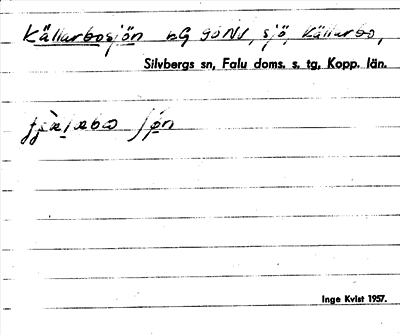 Källarbosjön nG 90NV, sjö, Källarbo,
Silvbergs sn, Falu doms. s. tg, Kopp. län.
Inge Kvist 1957.